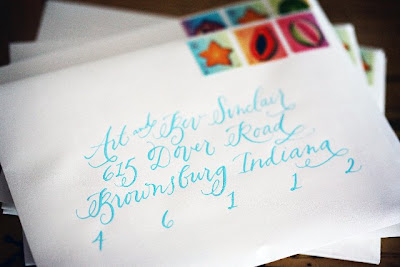 Art and Bev Sinclair
615 Dover Road
Brownsburg Indiana
4 6 1 1 2